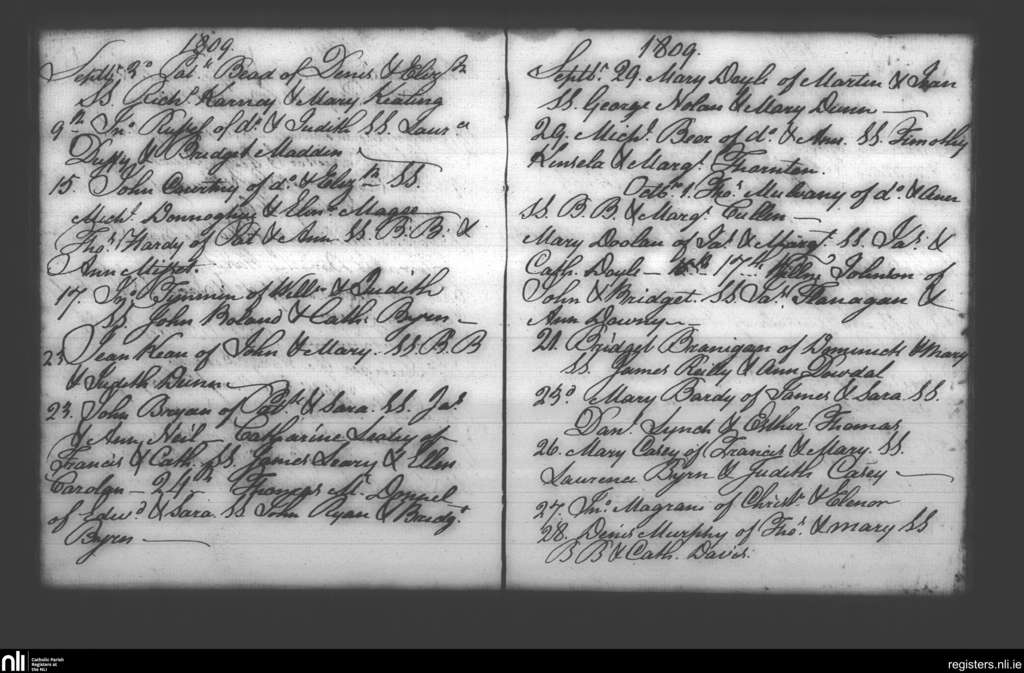 1809.
Septbr 3d Patk Bead of Denis & Elizth
SS. Richd Karnay & Mary Keating
9th Jno Russel of do & Judith SS. Laurce
Duffy & Bridget Madden
15. John Courtny of do & Elizth SS.
Michl Donnoghue & Elenr Magee
Thos Hardy of Pat & Ann SS. B. B. &
Ann
17. Jno Timmin of Willm & Judith
SS. John Boland & Cath. Byrn
23 Jean Kean of John & Mary. SS. B B
& Judith Dunn
23. John Bryan of Patk & Sara. SS. Jas
& Ann Neil — Catharine Leary of
Francis & Cath. SS. James Leary & Ellen
Carolan — 24th Frances Mc Donnel
of Edwd & Sara. SS John Ryan & Bridgt
Byrn
1809.
Septbr 29. Mary Doyle of Martin & Joan
SS. George Nolan & Mary Dunn
29. Michl Beer of do & Ann. SS. Timothy
Kinsela & Margt Thornton.
Octbr 1. Thos Mulvany of do & Ann
SS. B. B. & Margt Cullen
Mary Doolan of Jas & Margt. SS. Jas &
Cath. Doyle — 17th Johnson of
John & Bridget. SS Jas Flanagan &
Ann Downy
21. Bridget Branigan of Dominick & Mary
SS. James Reilly & Ann Dowdal
23d Mary Bardy of James & Sara. SS.
Danl Lynch & Esther Thomas
26. Mary Casey of Francis & Mary. SS.
Laurence Byrn & Judith Casey
27. Jno Magrane of Christr & Elenor
28. Denis Murphy of Thos & Mary SS
B B & Cath. Davis.
nli Catholic Parish
Registers at
the NLI
registers.nli.ie